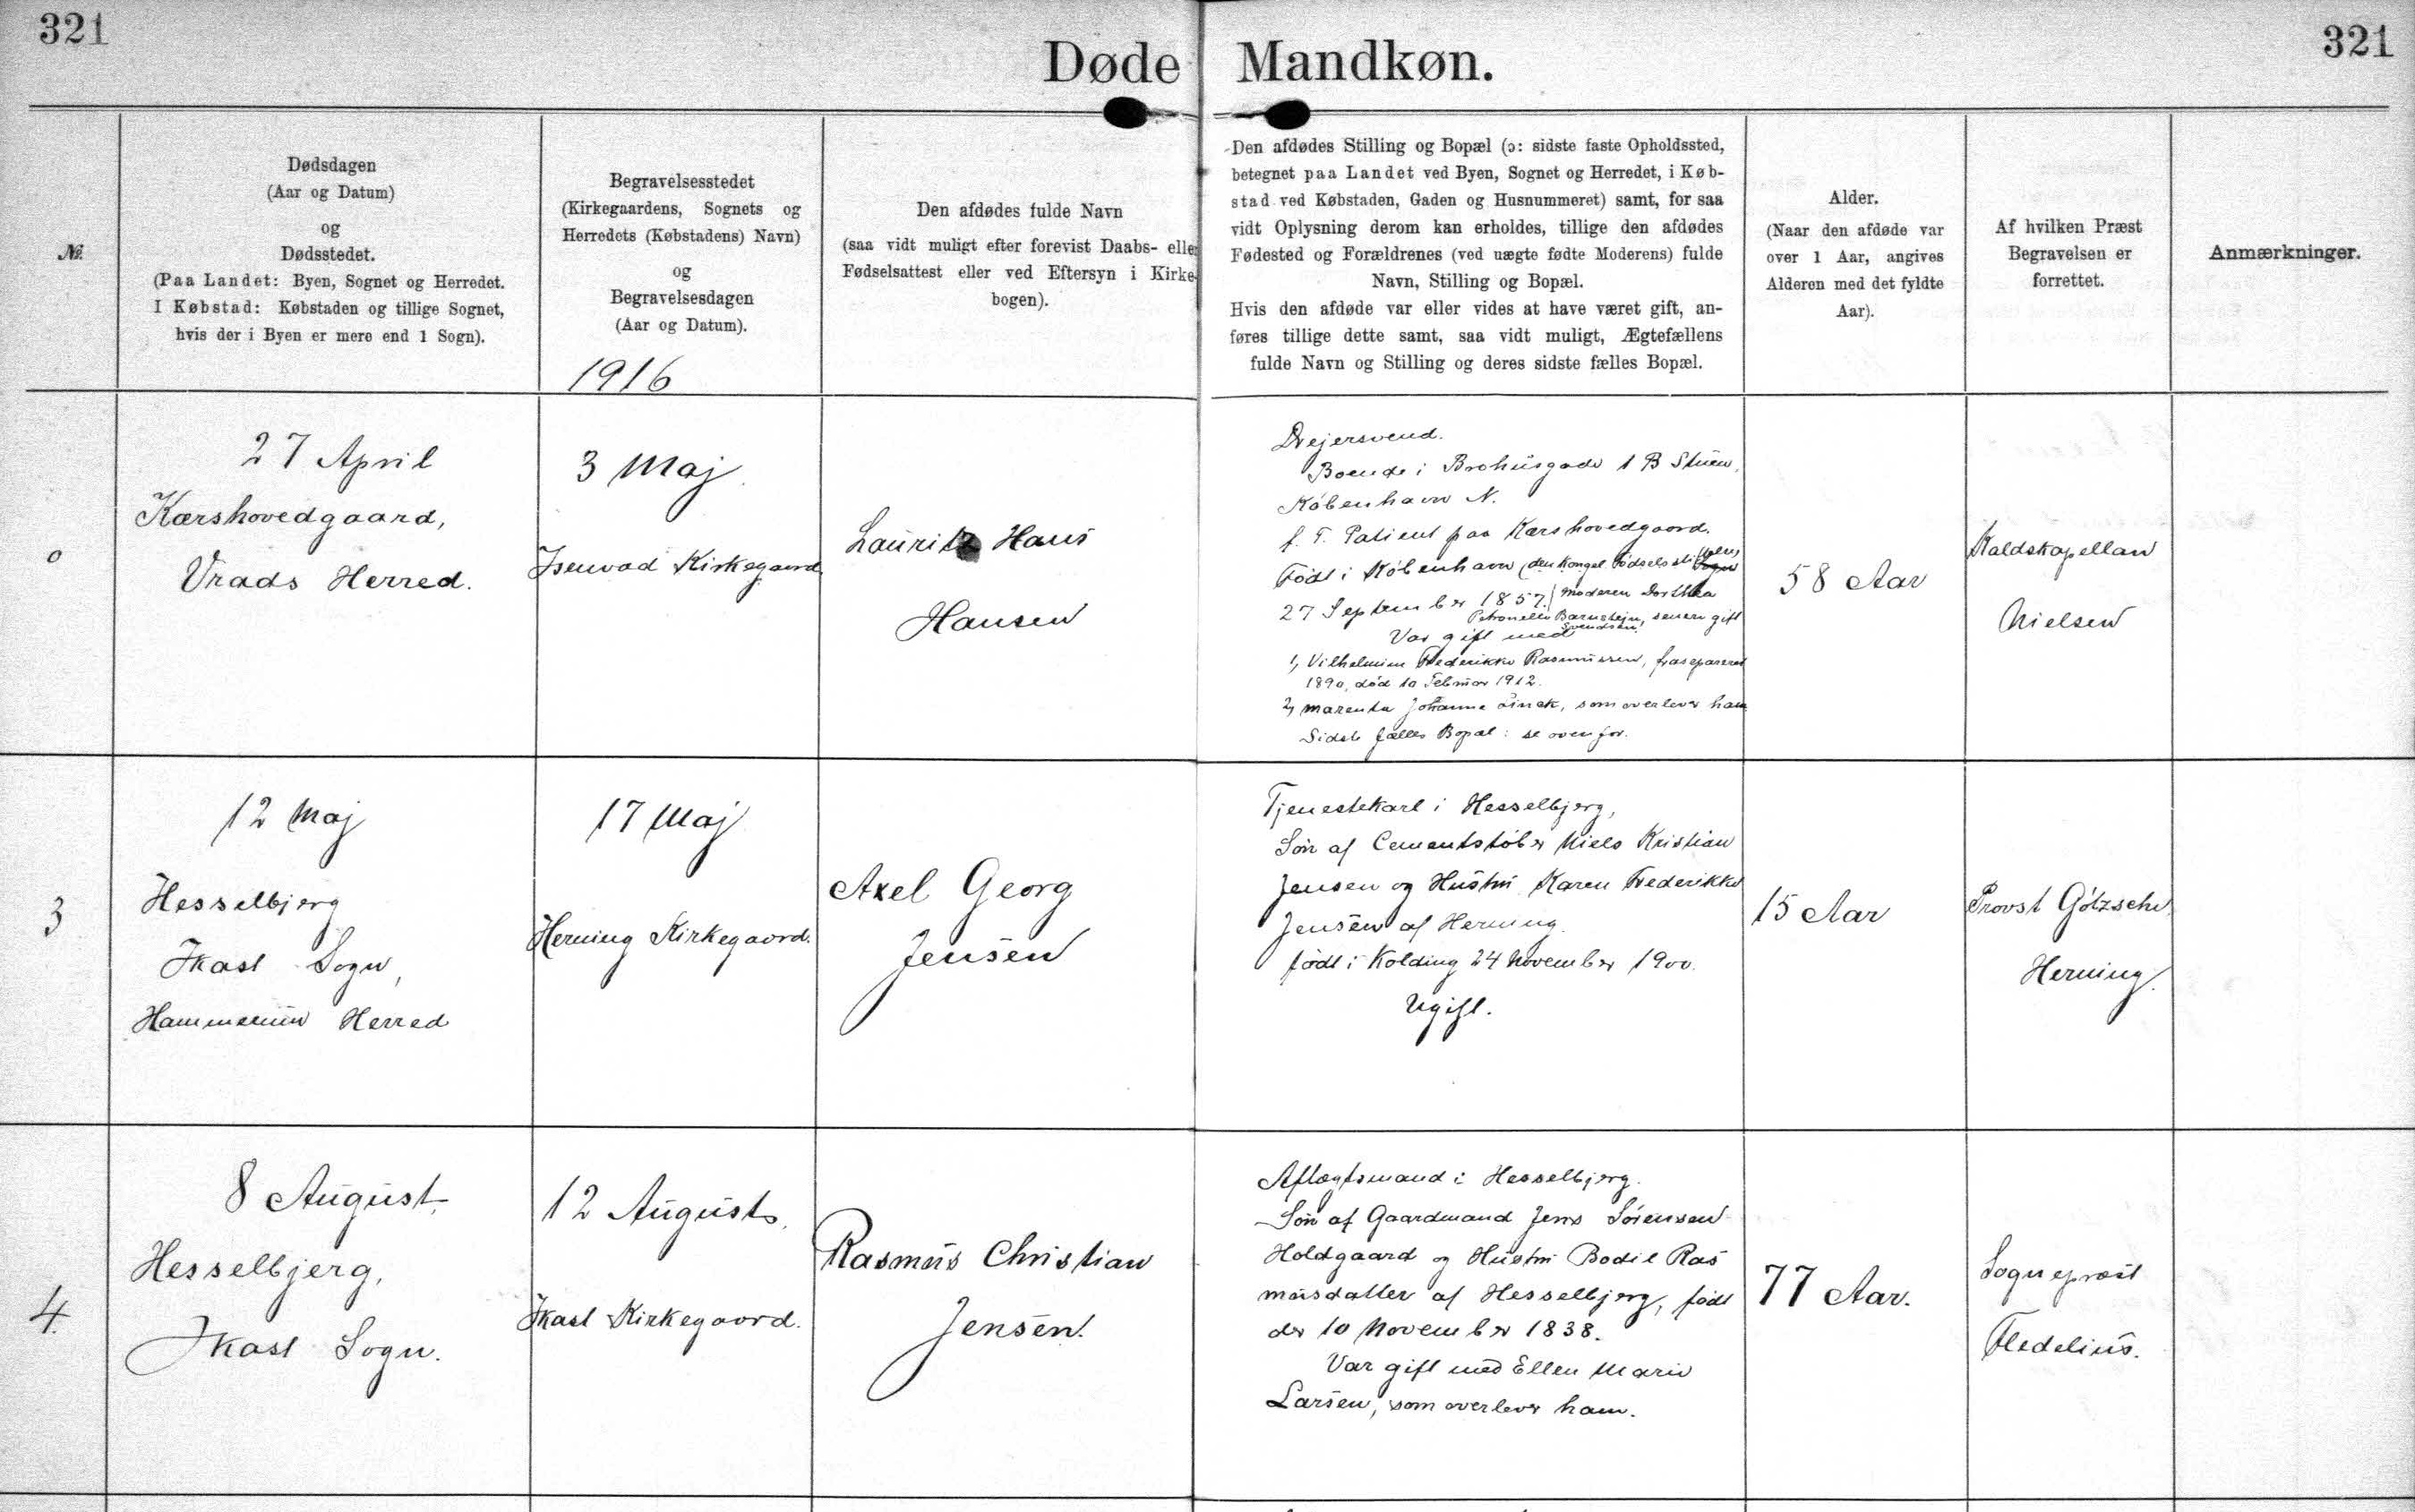 321
Døde Mandkøn.
321
№
Dødsdagen
(Aar og Datum)
og
Dødsstedet.
(Paa Landet: Byen, Sognet og Herredet.
I Købstad: Købstaden og tillige Sognet,
hvis der i Byen er mere end 1 Sogn).
Begravelsesstedet
(Kirkegaardens, Sognets og
Herredets (Købstadens) Navn)
og
Begravelsesdagen
(Aar og Datum).
1916
Den afdødes fulde Navn
(saa vidt muligt efter forevist Daabs- eller
Fødselsattest eller ved Eftersyn i Kirke-
bogen).
Den afdødes Stilling og Bopæl (ɔ: sidste faste Opholdssted,
betegnet paa Landet ved Byen, Sognet og Herredet, i Køb-
stad ved Købstaden, Gaden og Husnummeret) samt, for saa
vidt Oplysning derom kan erholdes, tillige den afdødes
Fødested og Forældrenes (ved uægte fødte Moderens) fulde
Navn, Stilling og Bopæl.
Hvis den afdøde var eller vides at have været gift, an-
føres tillige dette samt, saa vidt muligt, Ægtefællens
fulde Navn og Stilling og deres sidste fælles Bopæl.
Alder.
(Naar den afdøde var
over 1 Aar, angives
Alderen med det fyldte
Aar).
Af hvilken Præst
Begravelsen er
forrettet.
Anmærkninger.
0
27 April
Kærshovedgaard,
Vrads Herred.
3 Maj
Isenvad Kirkegaard.
Lauritz Hans
Hansen
Drejersvend.
Boende i Brohusgade 1 B Stuen,
København N.
f. T. Patient paa Kærshovedgaard.
Født i København (den Kongel. Fødselsstiftelse)
27 September 1857. Moderen Dorthea
Petronelle Barnstejn, senere gift
Svendsen.
Var gift med
1, Vilhelmine Frederikke Rasmussen, frasepareret
1890, død 10 Februar 1912.
2, Marentn Johanne, som overlever ham
Sidste fælles Bopæl: se ovenfor.
58 Aar
Kaldskapellan
Nielsen
3
12 Maj
Hesselbjerg
Ikast Sogn,
Hammerum Herred
17 Maj
Herning Kirkegaard.
Axel Georg
Jensen
Tjenestekarl i Hesselbjerg,
Søn af Cementstøber Niels Kristian
Jensen og Hustru Karen Frederikke
Jensen af Herning.
født i Kolding 24 November 1900.
Ugift.
15 Aar
Provst Gøtzsche,
Herning.
4.
8 August,
Hesselbjerg,
Ikast Sogn.
12 August,
Ikast Kirkegaard.
Rasmus Christian
Jensen.
Aftægtsmand i Hesselbjerg.
Søn af Gaardmand Jens Sørensen
Holdgaard og Hustru Bodil Ras
musdatter af Hesselbjerg, født
der 10 November 1838.
Var gift med Ellen Marie
Larsen, som overlever ham.
77 Aar.
Sognepræst
Fledelius.